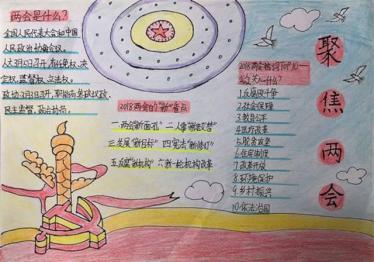 两会是什么?
全国人民代表大会和中国
人民政治协商会议。
人大3月5日召开,有任免权、决
定权、监督权、立法权。
政协3月3日召开,职能有参政议政、
民主监督、政治协商。
2018两会的"新"看点
一.两会"新面孔" 二.人事"新
三.发展"新目标" 四.宪法"新修订"
五.反腐"新机构" 六.新一轮机构改革
2018两会
关心什么?
1.反腐败斗争
2.社会保障
3.教育公平
4.医疗改革
5.脱贫攻坚
6.住房制度
7.改革开放
8.环境保护
9.乡村振兴
10.依法治国
聚焦两会